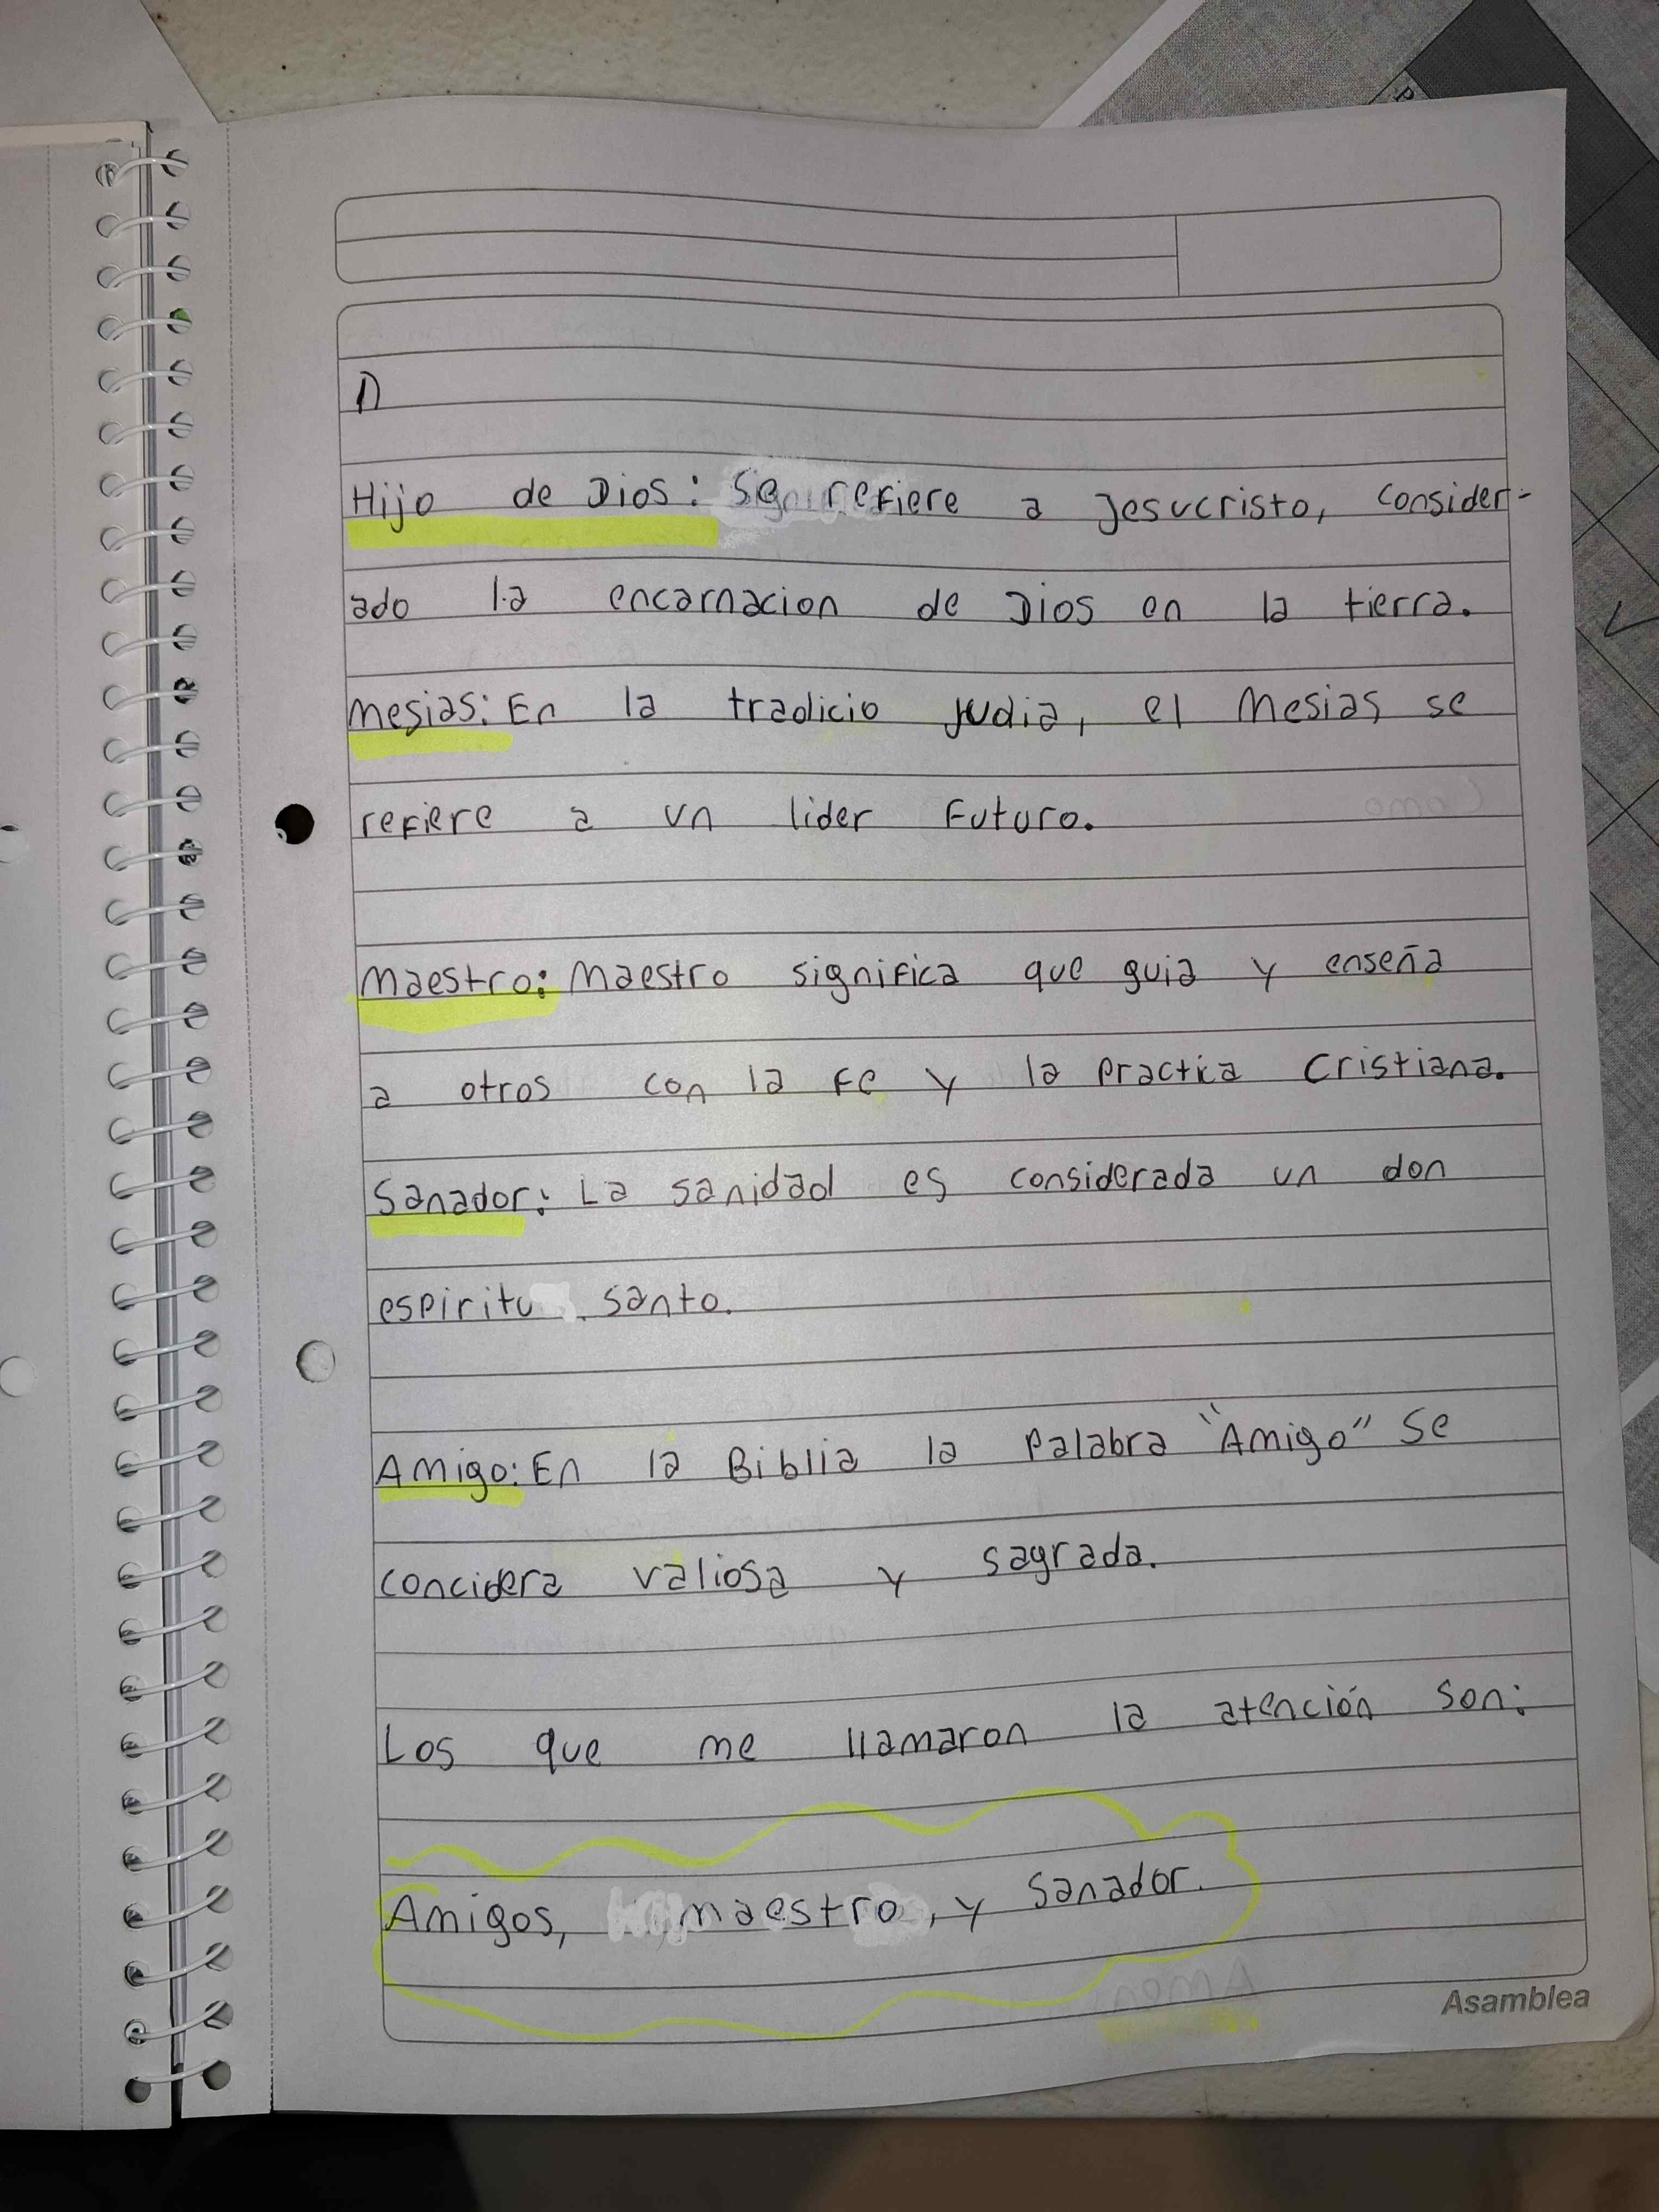 1)
Hijo de Dios: Se refiere a Jesucristo, consider-
ado la encarnacion de Dios en la tierra.
Mesias: En la tradicio judia, el Mesias se
refiere a un lider Futuro.
Maestro: Maestro significa que guia y enseña
a otros con la Fe y la Practica Cristiana.
Sanador: La sanidad es considerada un don
espiritu santo.
Amigo: En la Biblia la Palabra "Amigo" Se
concidera valiosa y sagrada.
Los que me llamaron la atención son:
Amigos, maestro, y Sanador.
Asamblea